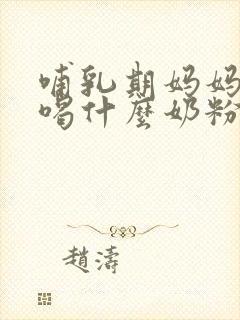 哺乳期妈妈
喝什麼奶粉
趙濤